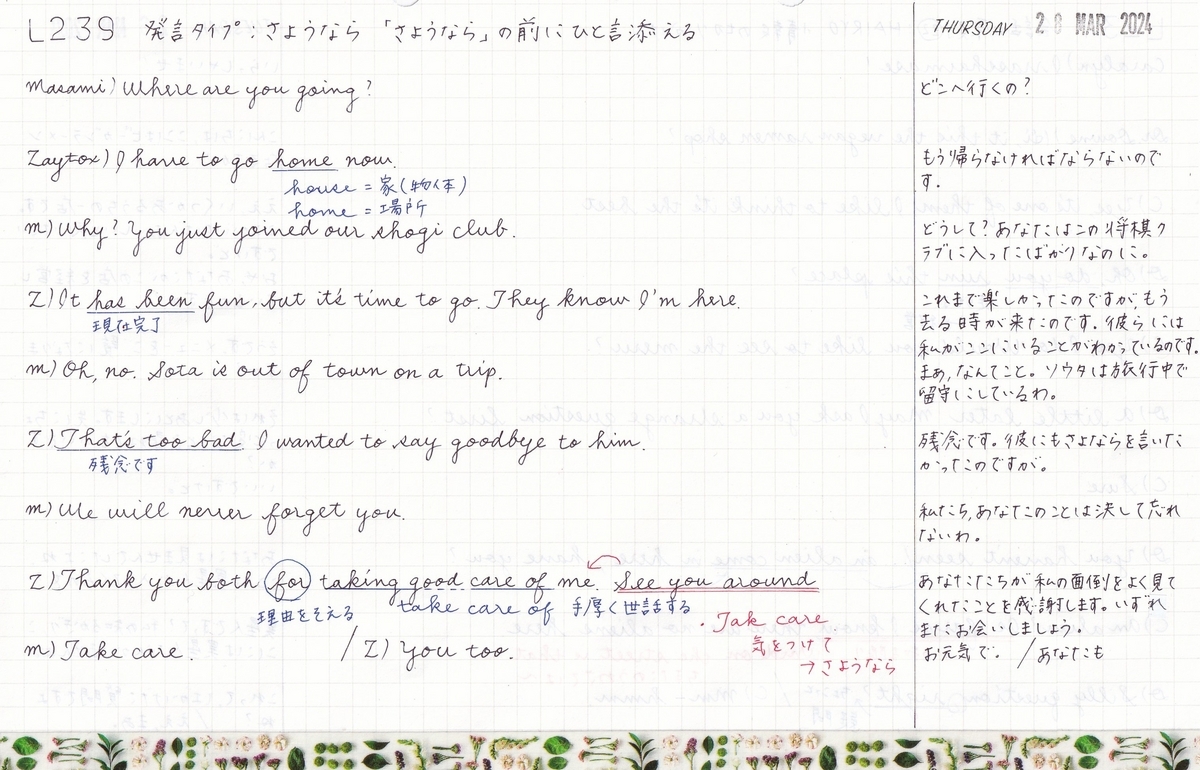 L239 発言タイプ:さようなら 「さようなら」の前にひと言添える
THURSDAY 28 MAR 2024
Masami) Where are you going?
どこへ行くの?
Zaytox) I have to go home now.
house = 家(物体)
home = 場所
もう帰らなければならないので
す。
M) Why? You just joined our shogi club.
どうして?あなたはこの将棋ク
ラブに入ったばかりなのに。
Z) It has been fun, but it's time to go. They know I'm here.
現在完了
これまで楽しかったのですが、もう
去る時が来たのです。彼らには
私がここにいることがわかっているのです。
M) Oh, no. Sota is out of town on a trip.
まあ、なんてこと。ソウタは旅行中で
留守にしているわ。
Z) That's too bad. I wanted to say goodbye to him.
残念です
残念です。彼にもさよならを言いた
かったのですが。
M) We will never forget you.
私たち、あなたのことは決して忘れ
ないわ。
Z) Thank you both for taking good care of me. See you around
理由をそえる take care of 手厚く世話する
・Tak care.
気をつけて
→さようなら
あなたたちが私の面倒をよく見て
くれたことを感謝します。いずれ
またお会いしましょう。
M) Take care. / Z) You too.
お元気で。 / あなたも